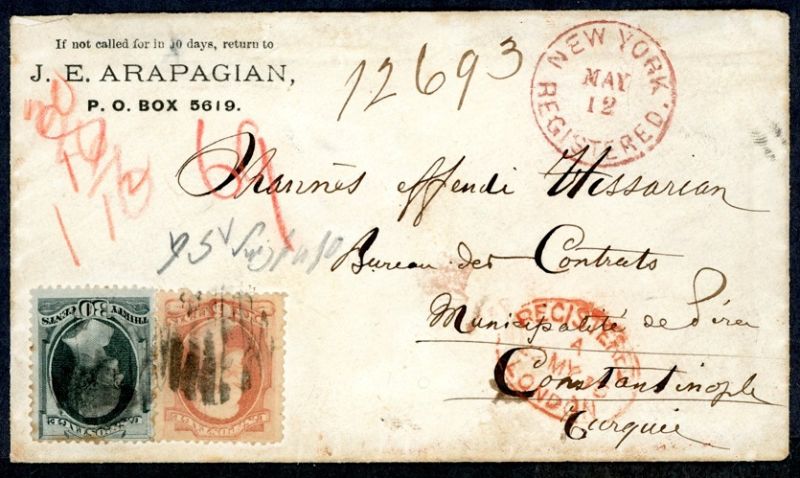 If not called for in 10 days, return to
J. E. ARAPAGIAN,
P. O. BOX 5619.
12693
NEW YORK
MAY
12
REGISTERED.
69
Ohannès effendi Wissarian
Bureau des Contrats
Municipalité de Péra
Constantinople
Turquie
REGISTERED
4
MY
LONDON
30
THIRTY CENTS